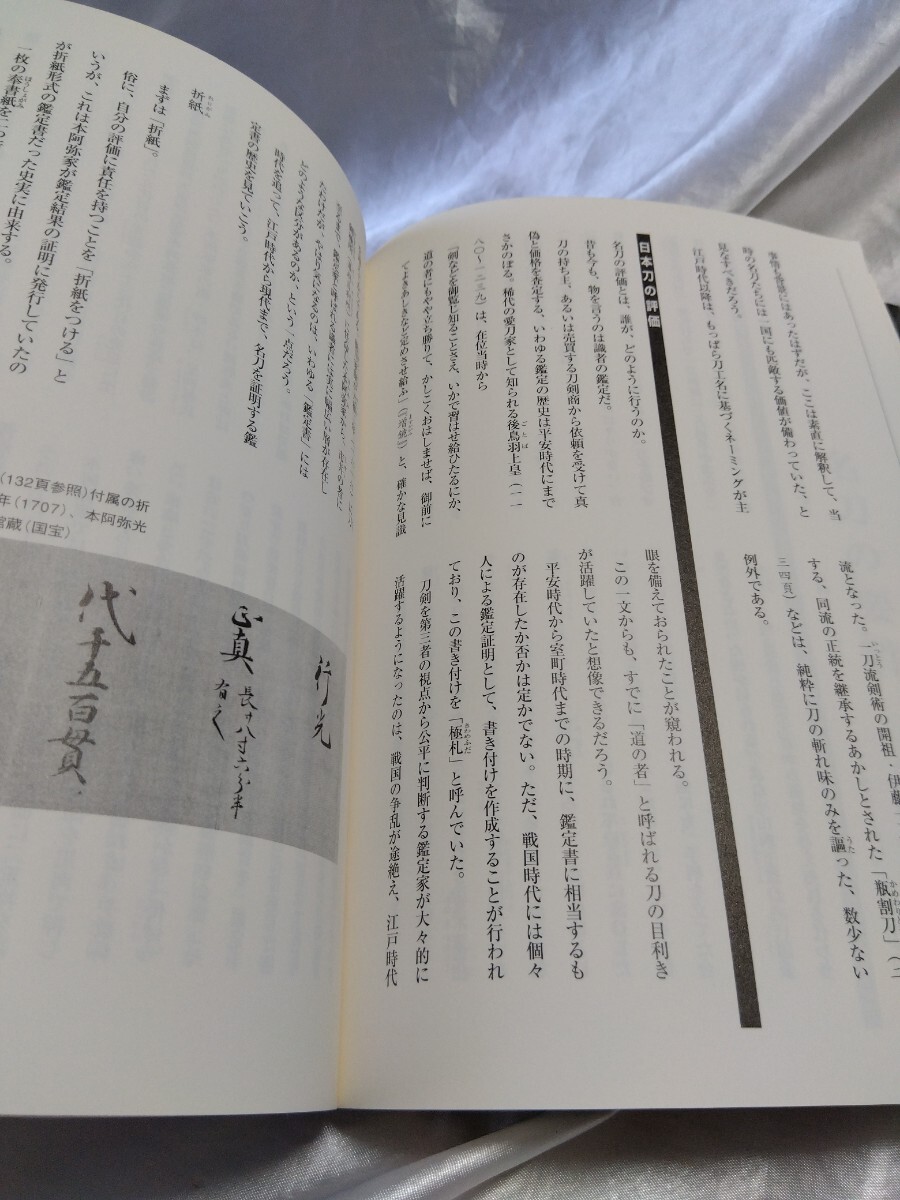 事情も背景にはあったはずだが、ここは素直に解釈して、当
時の名刀たちには一国にも匹敵する価値が備わっていた、と
見なすべきだろう。
江戸時代以降は、もっぱら刀工名に基づくネーミングが主
流となった。一刀流剣術の開祖・伊藤
する、同流の正統を継承するあかしとされた「瓶割刀」（二
三四頁）などは、純粋に刀の斬れ味のみを謳った、数少ない
例外である。
日本刀の評価
名刀の評価とは、誰が、どのように行うのか。
昔も今も、物を言うのは識者の鑑定だ。
刀の持ち主、あるいは売買する刀剣商から依頼を受けて真
偽と価格を査定する、いわゆる鑑定の歴史は平安時代にまで
さかのぼる。稀代の愛刀家として知られる後鳥羽上皇（一一
八〇～一二三九）は、在位当時から
「剣などを御覧じ知ることさえ、いかで習はせ給ひたるにか、
道の者にもやや立ち勝りて、かしこくおはしませば、御前に
てよきあしきなど定めさせ給ふ」（『増鏡』）と、確かな見識
眼を備えておられたことが窺われる。
この一文からも、すでに「道の者」と呼ばれる刀の目利き
が活躍していたと想像できるだろう。
平安時代から室町時代までの時期に、鑑定書に相当するも
のが存在したか否かは定かでない。ただ、戦国時代には個々
人による鑑定証明として、書き付けを作成することが行われ
ており、この書き付けを「極札」と呼んでいた。
刀剣を第三者の視点から公平に判断する鑑定家が大々的に
活躍するようになったのは、戦国の争乱が途絶え、江戸時代
だけだが、やはり気になるのは、いわゆる「鑑定書」には
どのような区分があるのか、という一点だろう。
時代を追って、江戸時代から現代まで、名刀を証明する鑑
定書の歴史を見ていこう。
折紙
まずは「折紙」。
俗に、自分の評価に責任を持つことを「折紙をつける」と
いうが、これは本阿弥家が鑑定結果の証明に発行していたの
が折紙形式の鑑定書だった史実に由来する。
一枚の奉書紙を二つ
(132頁参照)付属の折
年(1707)、本阿弥光
館蔵(国宝)
行光
正真 長サ八寸六分半
有之
代千五百貫